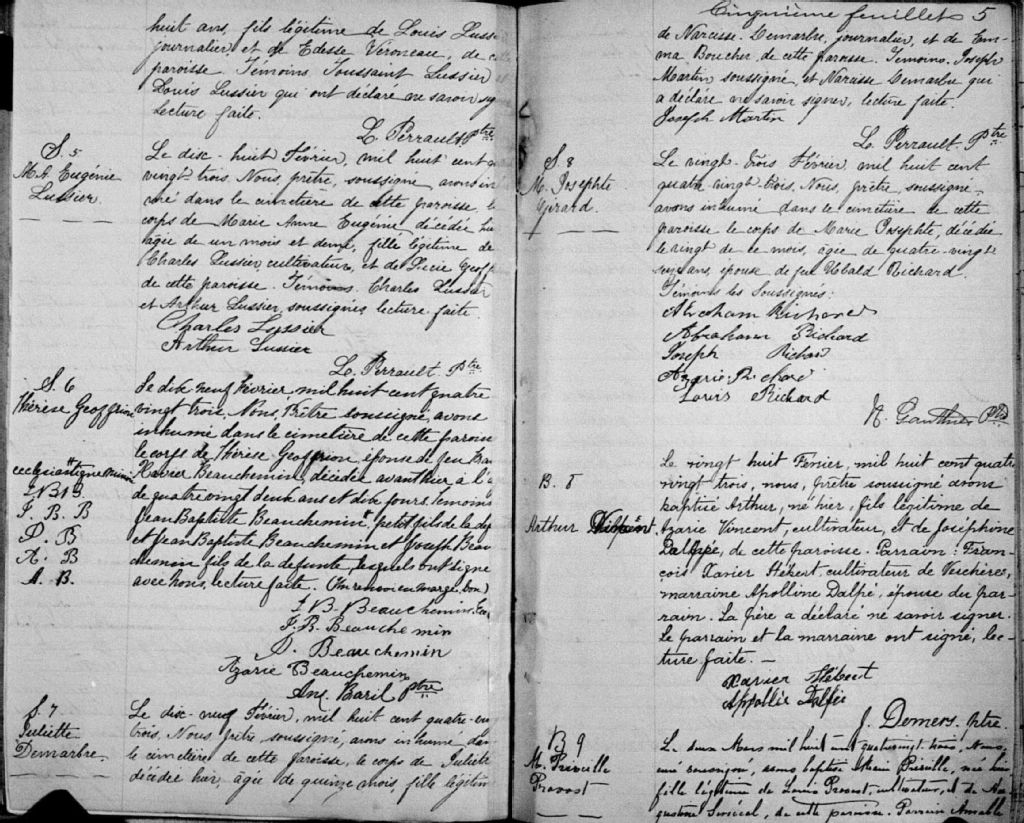 huit ans, fils légitime de Louis Lussier
journalier et de Edesse Véroneau, de
paroisse. Témoins Toussaint Lussier
Louis Lussier qui ont déclaré ne savoir
Lecture faite.
L. Perrault Ptre
S. 5
M. A. Eugénie
Lussier
Le disc-huit Février, mil huit cent
vingt-trois, Nous, prêtre, soussigné avons in
mé dans le cimetière de cette paroisse, le
corps de Marie Anne Eugénie, décédée
agée de un mois et demi, fille légitime de
Charles Lussier, cultivateur, et de
de cette paroisse. Témoins. Charles Lussier
et Arthur Lussier, soussignés, lecture faite.
Charles Lussier
Arthur Lussier
L. Perrault Ptre
S. 6
Thérèse Geoffrion
Le dix-neuf février, mil huit cent quatre
vingt trois, Nous, Prêtre soussigné, avons
inhumé dans le cimetière de cette
le corps de Thérèse Geoffrion, épouse de feu
Xavier Beauchemin, décédée avanthier à l'
de quatre vingt deux ans et dix jours. Temoins
Jean Baptiste Beauchemin, petit fils de la
et Jean Baptiste Beauchemin et Joseph Beau
chemin fils de la defunte, lesquels ont signé
avec nous, lecture faite. (Un renvoi en marge, bon)
J. B. B.
F. B. B
O. B
A. B
A. B.
J. B. Beauchemin
F. B. Beauchemin
O. Beauchemin
Azarie Beauchemin
Ant. Baril Ptre
S. 7
Juliette
Demarbre
Le disc-neuf Février, mil huit cent quatre-
trois, Nous, prêtre, soussigné, avons inhumé
le cimetière de cette paroisse, le corps de Juliette
décédée hier, âgée de quinze mois, fille
Cinquième feuillet 5
de Narcisse Demarbre, journalier, et de Em-
ma Boucher de cette paroisse. Témoins. Joseph
Martin soussigné, et Narcisse Demarbre qui
a déclaré ne savoir signer, lecture faite.
Joseph Martin
L. Perrault. Ptre
S. 8
M. Josephte
Girard.
Le vingt-trois Février, mil huit cent
quatre-vingt trois, Nous, prêtre, soussigné,
avons inhumé dans le cimetière de cette
paroisse le corps de Marie Josephte, décédée
le vingt de ce mois, âgée de quatre-vingt
ans, épouse de feu Ubald Richard.
Témoins les Soussignés:
Abraham Richard
Abraham Richard
Joseph Richard
Azarie Richard
Louis Richard
N. Gauthier Ptre
B. 8
Arthur
Le vingt huit Fevrier, mil huit cent quatre
vingt trois, nous, prêtre soussigné avons
baptisé Arthur, né hier, fils légitime de
Azarie Vincent, cultivateur, et de Joséphine
Dalpé, de cette paroisse. Parrain: Fran-
çois Xavier Hébert, cultivateur de Verchères,
marraine Apolline Dalpé, épouse du par-
rain. Le père a déclaré ne savoir signer.
Le parrain et la marraine ont signé, lec-
ture faite. —
Xavier Hébert
Appollie Dalpée
J. Demers. ptre
B 9
M. Préville
Provost
Le deux Mars mil huit cent quatrevingt trois, Nous,
curé soussigné, avons baptisé Marie Préville, née hier
fille légitime de Louis Provost, cultivateur, et de Au
gustine Sénécal, de cette paroisse. Parrain